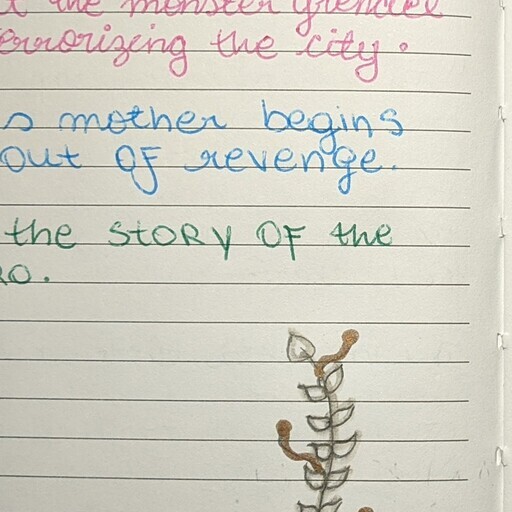 the monster Grendel
errorizing the city.
s mother begins
out of revenge.
the story of the
RO.